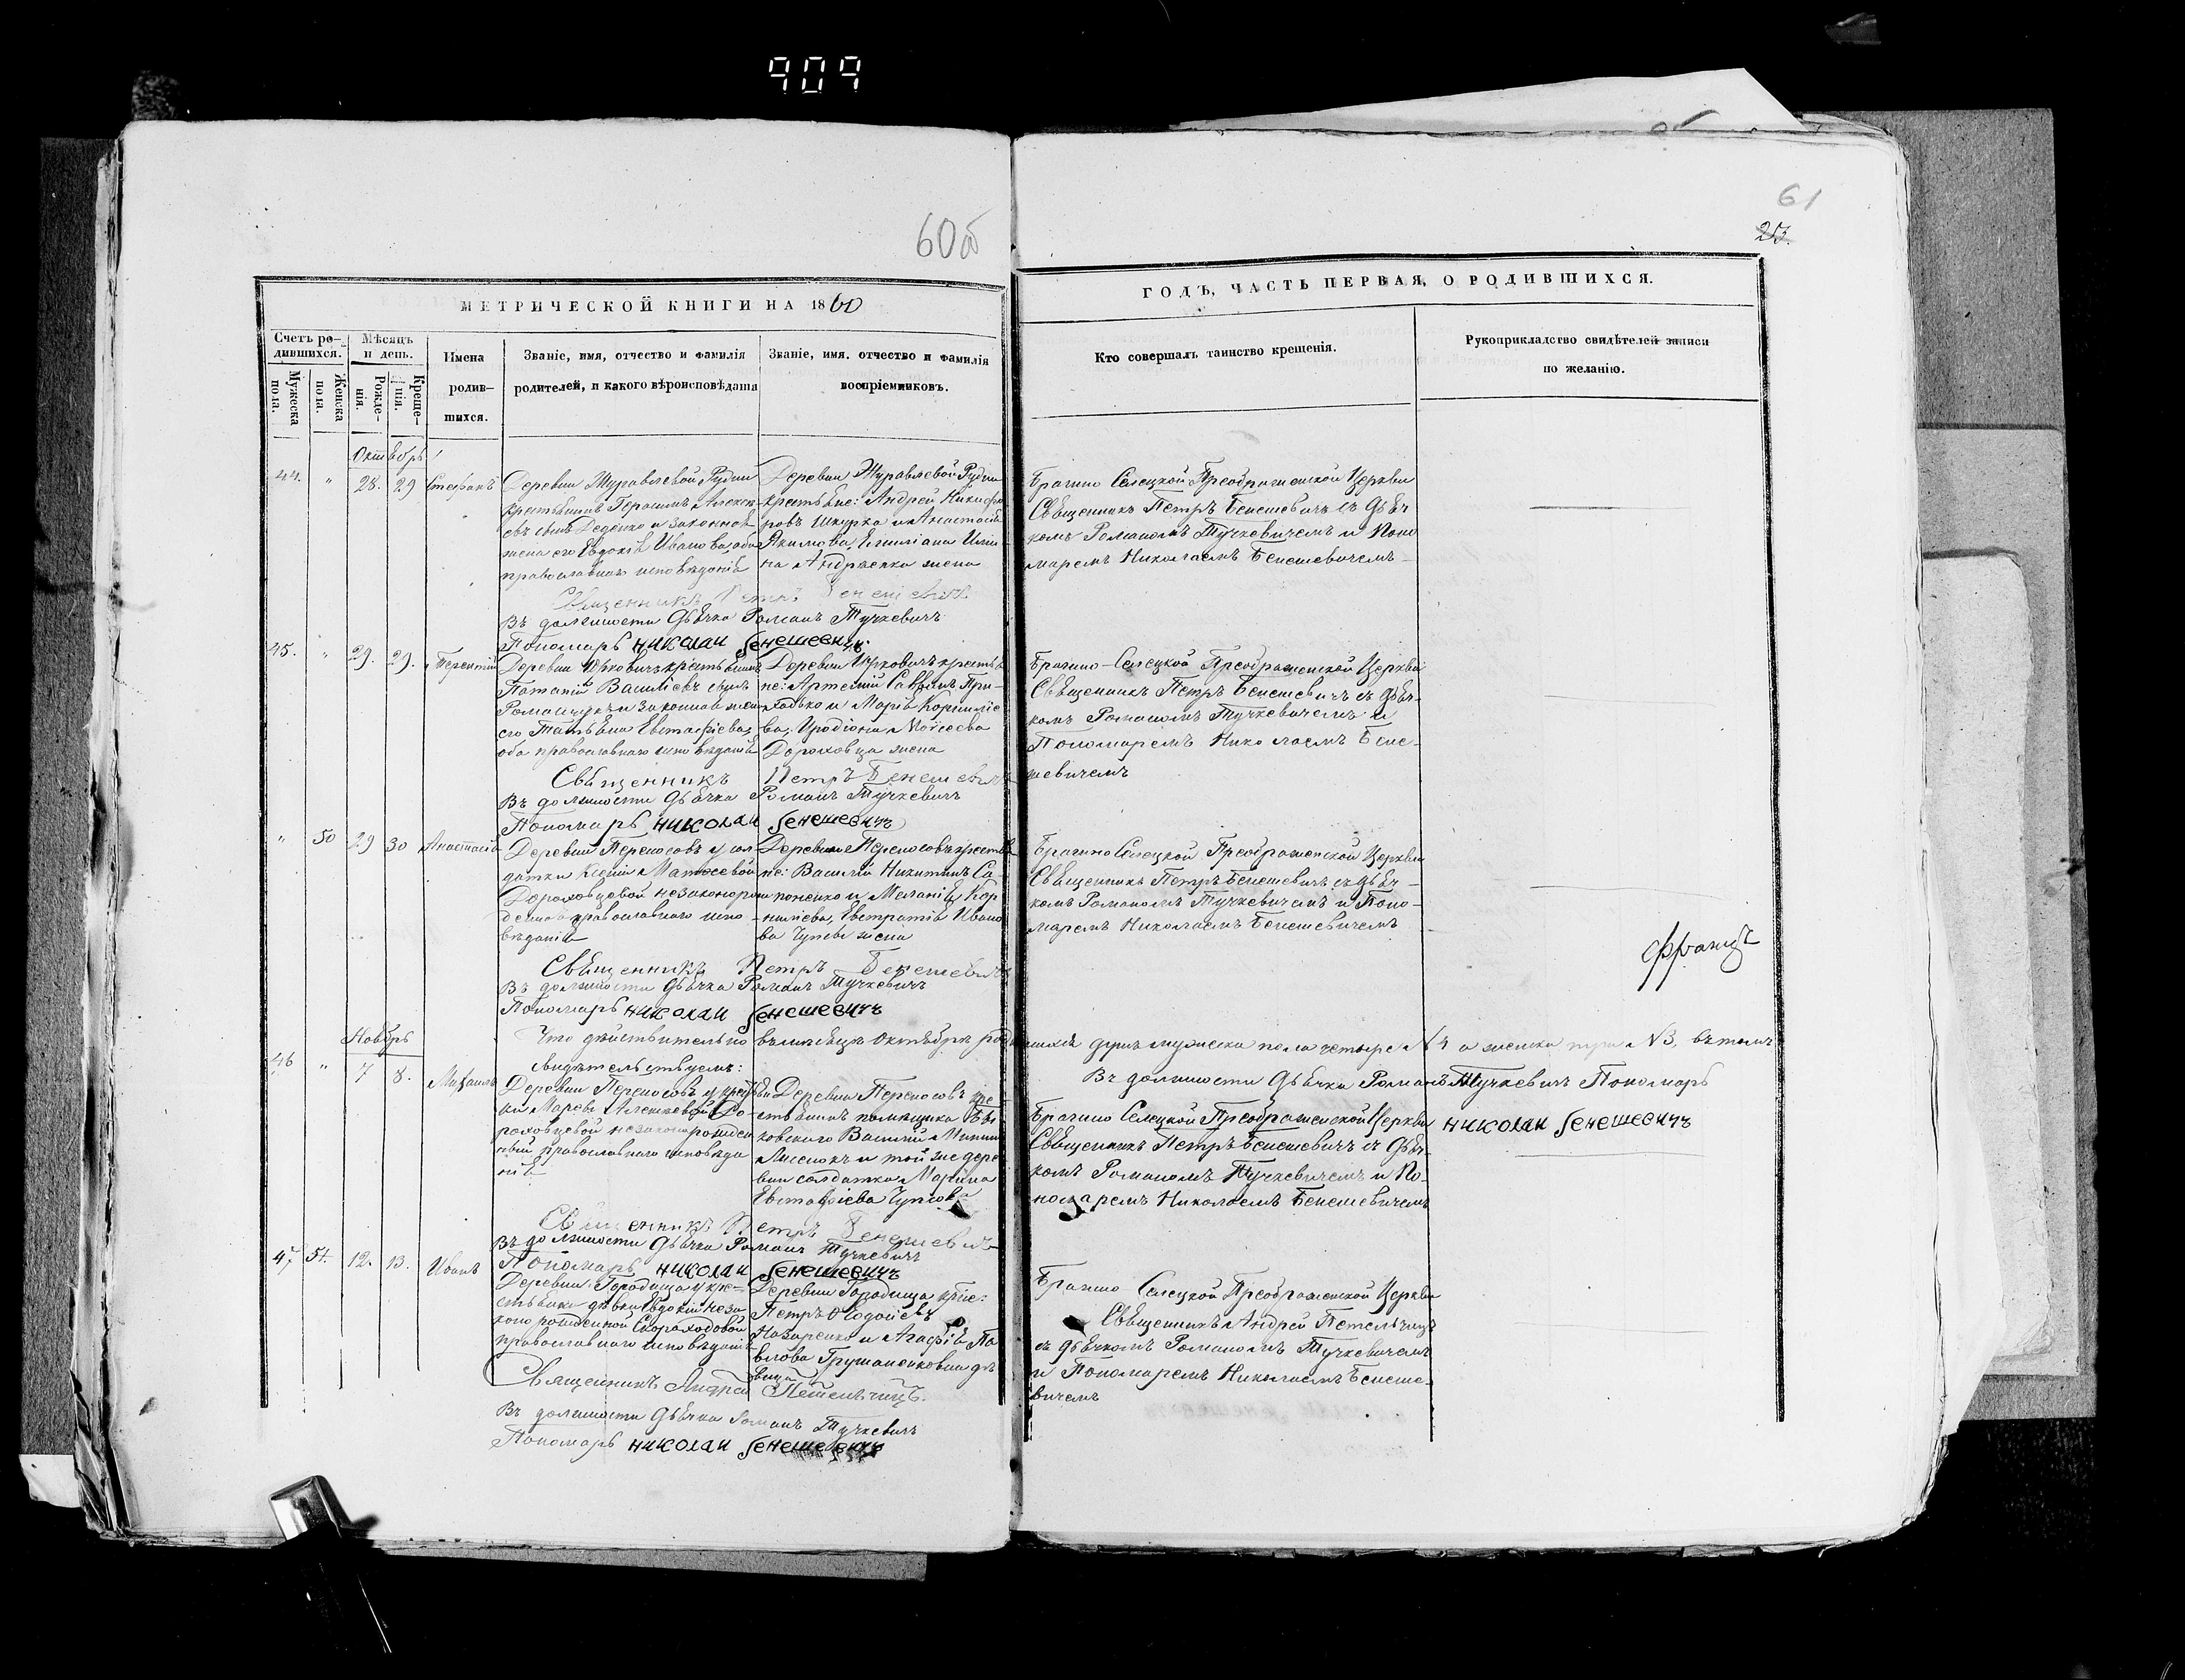 909
60об
61
25.
МЕТРИЧЕСКОЙ КНИГИ НА 1860
ГОДЪ, ЧАСТЬ ПЕРВАЯ, О РОДИВШИХСЯ.
Счетъ ро-
дившихся.
Мужеска
пола.
Женска
пола.
Мѣсяцъ
и день.
Рожде-
нія.
Креще-
нія.
Имена
родив-
шихся.
Званіе, имя, отчество и фамилія
родителей, и какого вѣроисповѣданія
Званіе, имя, отчество и фамилія
воспріемниковъ.
Кто совершалъ таинство крещенія.
Рукоприкладство свидѣтелей записи
по желанію.
Октябрь
44. " 28. 29 Стефанъ
Деревни Журавлевой Рудни
крестьянинъ Герасимъ Алексѣ-
евъ сынъ Деденко и законная
жена его Евдокія Иванова, оба
православнаго исповѣданія
Деревни Журавлевой Рудни
крестьяне: Андрей Никифо
ровъ Шкурка и Анастасія
Якимова, Емиліана Ильи
на Андреенка жена
Брагино Селецкой Преображенской Церкви
Священникъ Петръ Бенешевичъ съ Дьяч
комъ Романомъ Тучкевичемъ и Поно
маремъ Николаемъ Бенешевичемъ
Священникъ Петръ Бенешевичъ
Въ должности Дьячка Романъ Тучкевичъ
Пономарь Николай Бенешевичъ
45. " 29. 29. Терентій
Потапій Василіевъ сынъ
Романчукъ и законная жена
его Татьяна Евстафіева,
оба православнаго исповѣданія
не: Артемій Саввинъ При-
ходько и Марія Корниліе
ва, Иродіона Моисеева
Дороховца жена
Брагино-Селецкой Преображенской Церкви
Священникъ Петръ Бенешевичъ съ Дьяч-
комъ Романомъ Тучкевичемъ и
Пономаремъ Николаемъ Бене-
шевичемъ
Священникъ Петръ Бенешевичъ
Въ должности Дьячка Романъ Тучкевичъ
Пономарь Николай Бенешевичъ
" 50 29 30 Анастасія
Деревни Переносовъ у сол
датки Ксеніи Матөеевой
Дороховцевой незаконорож
денна православнаго испо
вѣданія
Деревни Переносовъ крестья
не: Василій Никитинъ Са-
поненко и Меланія Кор
нилиева, Евстратія Ивано
ва Чупы жена
Брагино Селецкой Преображенской Церкви
Священникъ Петръ Бенешевичъ съ Дьяч-
комъ Романомъ Тучкевичемъ и Поно-
маремъ Николаемъ Бенешевичемъ
Священникъ Петръ Бенешевичъ
Въ должности Дьячка Романъ Тучкевичъ
Пономарь Николай Бенешевичъ
Ноябрь
Что дѣйствительно въ мѣсяцѣ Октябрѣ роди
вшихся душъ мужеска пола четыре №4 а женска три №3, въ томъ
свидѣтельствуемъ:
Въ должности Дьячка Романъ Тучкевичъ Пономарь
Николай Бенешевичъ
46 " 7 8. Михаилъ
роховцевой незаконорожден
ный православнаго исповѣда
нія
Деревни Переносовъ кре-
стьянинъ помѣщика
ковскаго Василій Мининъ
Лисенокъ и той же дере
вни солдатка Марина
Евстафіева Чупова
Брагино Селецкой Преображенской Церкви
Священникъ Петръ Бенешевичъ съ Дьяч-
комъ Романомъ Тучкевичемъ и По-
номаремъ Николаемъ Бенешевичемъ
Священникъ Петръ Бенешевичъ
Въ должности Дьячка Романъ Тучкевичъ
Пономарь Николай Бенешевичъ
47 51. 12. 13. Иванъ
Деревни Городища у кре-
стьянки дѣвки Евдокіи неза
конорожденной Скороходовой
православнаго исповѣданія
Деревни Городища крес:
Петръ
Назаренко и Агафія Па
влова Грушаненкова дѣ
вица
Брагино Селецкой Преображенской Церкви
Священникъ Андрей Петельчицъ
съ дьячкомъ Романомъ Тучкевичемъ
и Пономаремъ Николаемъ Бенеше-
вичемъ
Священникъ Андрей Петельчицъ.
Въ должности Дьячка Романъ Тучкевичъ
Пономарь Николай Бенешевичъ